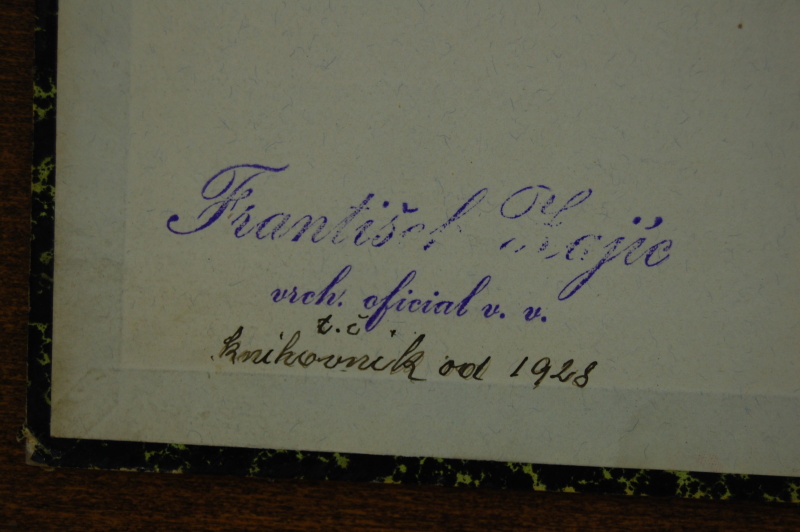 František Zajíc
vrch. oficial v. v.
t. č.
knihovník od 1928